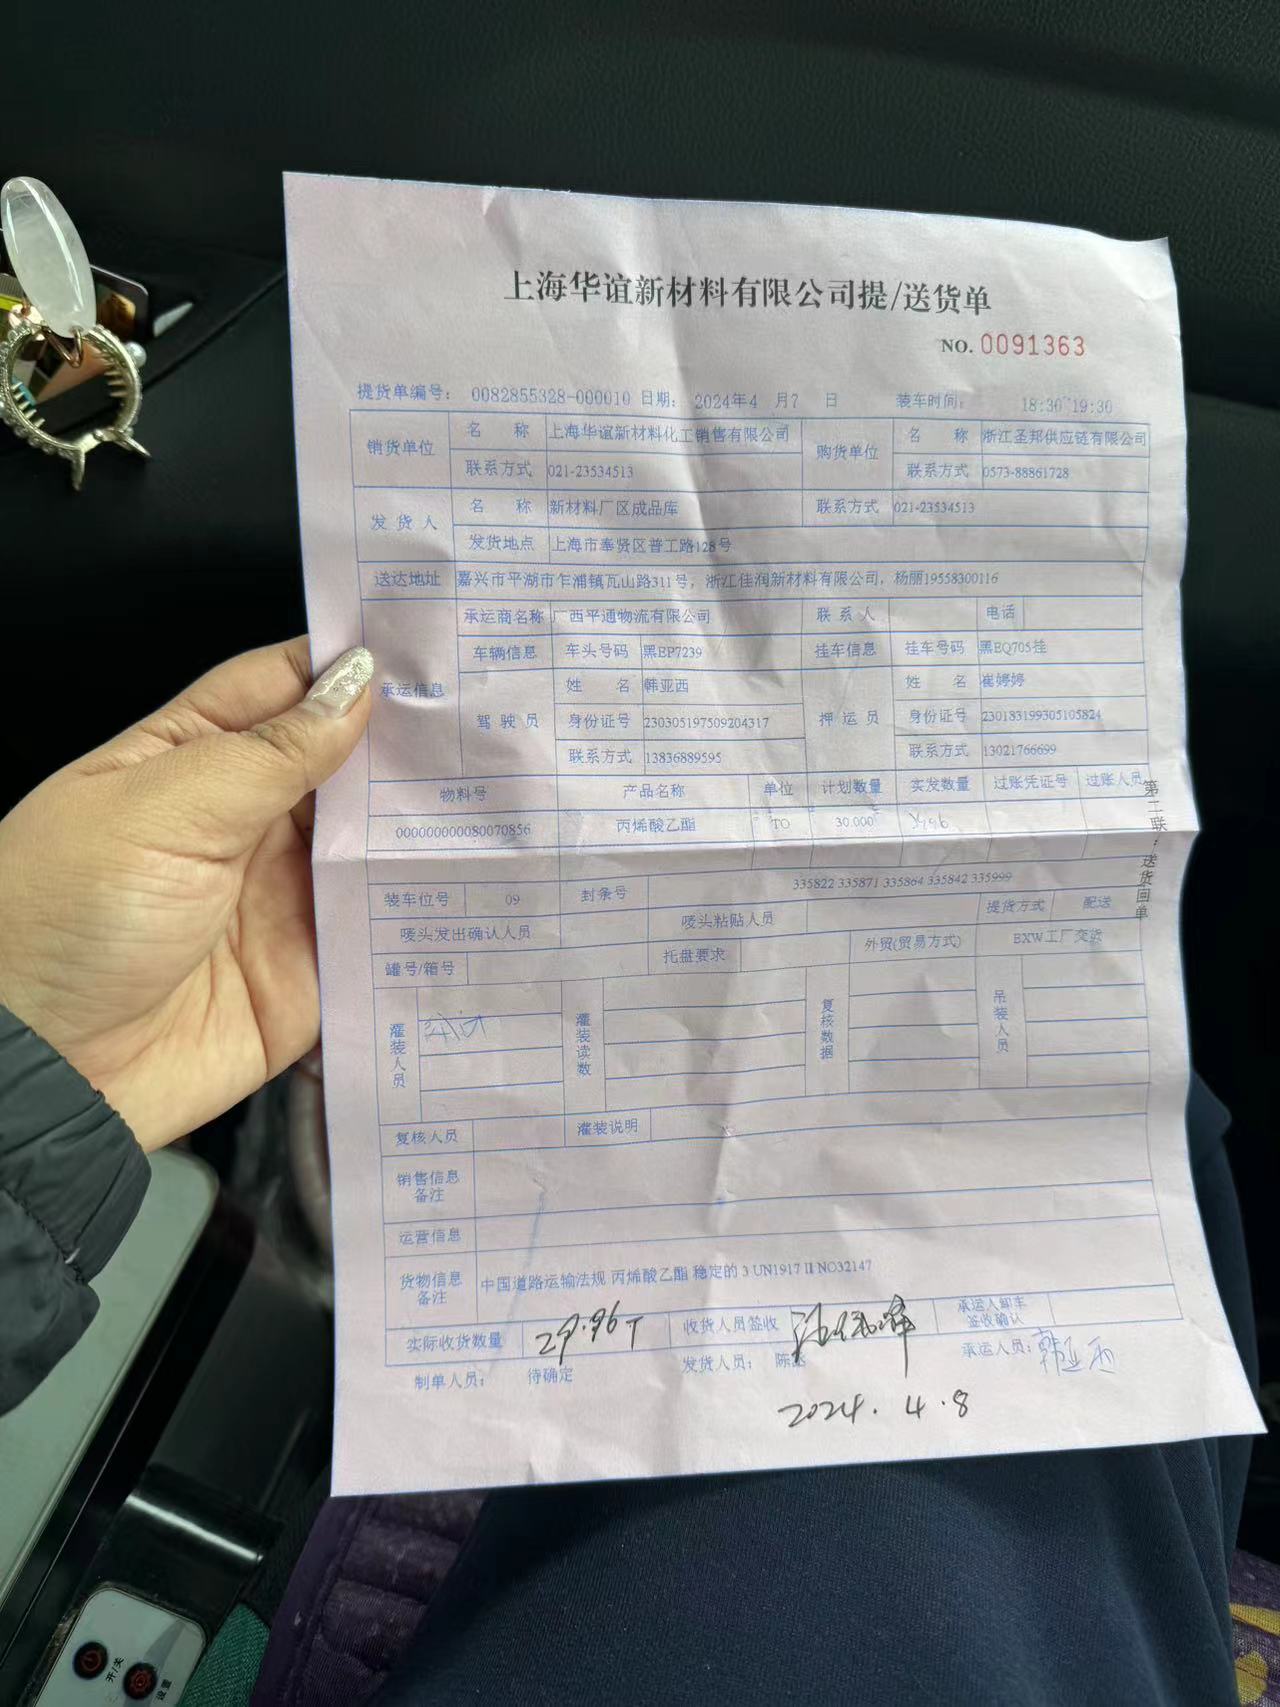 上海华谊新材料有限公司提/送货单
NO. 0091363
提货单编号： 0082855328-000010 日期： 2024年4 月7 日 装车时间： 18:30~19:30
销货单位 名 称 上海华谊新材料化工销售有限公司 购货单位 名 称 浙江圣邦供应链有限公司
联系方式 021-23534513 联系方式 0573-88861728
发货人 名 称 新材料厂区成品库 联系方式 021-23534513
发货地点 上海市奉贤区普工路128号
送达地址 嘉兴市平湖市乍浦镇瓦山路311号，浙江佳润新材料有限公司，杨丽19558300116
承运信息 承运商名称 广西平通物流有限公司 联系人 电话
车辆信息 车头号码 黑EP7239 挂车信息 挂车号码 黑EQ705挂
驾驶员 姓 名 韩亚西 押运员 姓 名 崔婷婷
身份证号 230305197509204317 身份证号 230183199305105824
联系方式 13836889595 联系方式 13021766699
物料号 产品名称 单位 计划数量 实发数量 过账凭证号 过账人员
000000000080070856 丙烯酸乙酯 TO 30.000
装车位号 09 封条号 335822 335871 335864 335842 335999
唛头发出确认人员 唛头粘贴人员 提货方式 配送
罐号/箱号 托盘要求 外贸(贸易方式) EXW工厂交货
灌装人员 灌装读数 复核数据 吊装人员
复核人员 灌装说明
销售信息备注
运营信息
货物信息备注 中国道路运输法规 丙烯酸乙酯 稳定的 3 UN1917 II NO32147
实际收货数量 29.96T 收货人员签收 承运人卸车签收确认
制单人员： 待确定 发货人员： 陈丞 承运人员： 韩亚西
2024.4.8
第二联：送货回单
开/关
设置